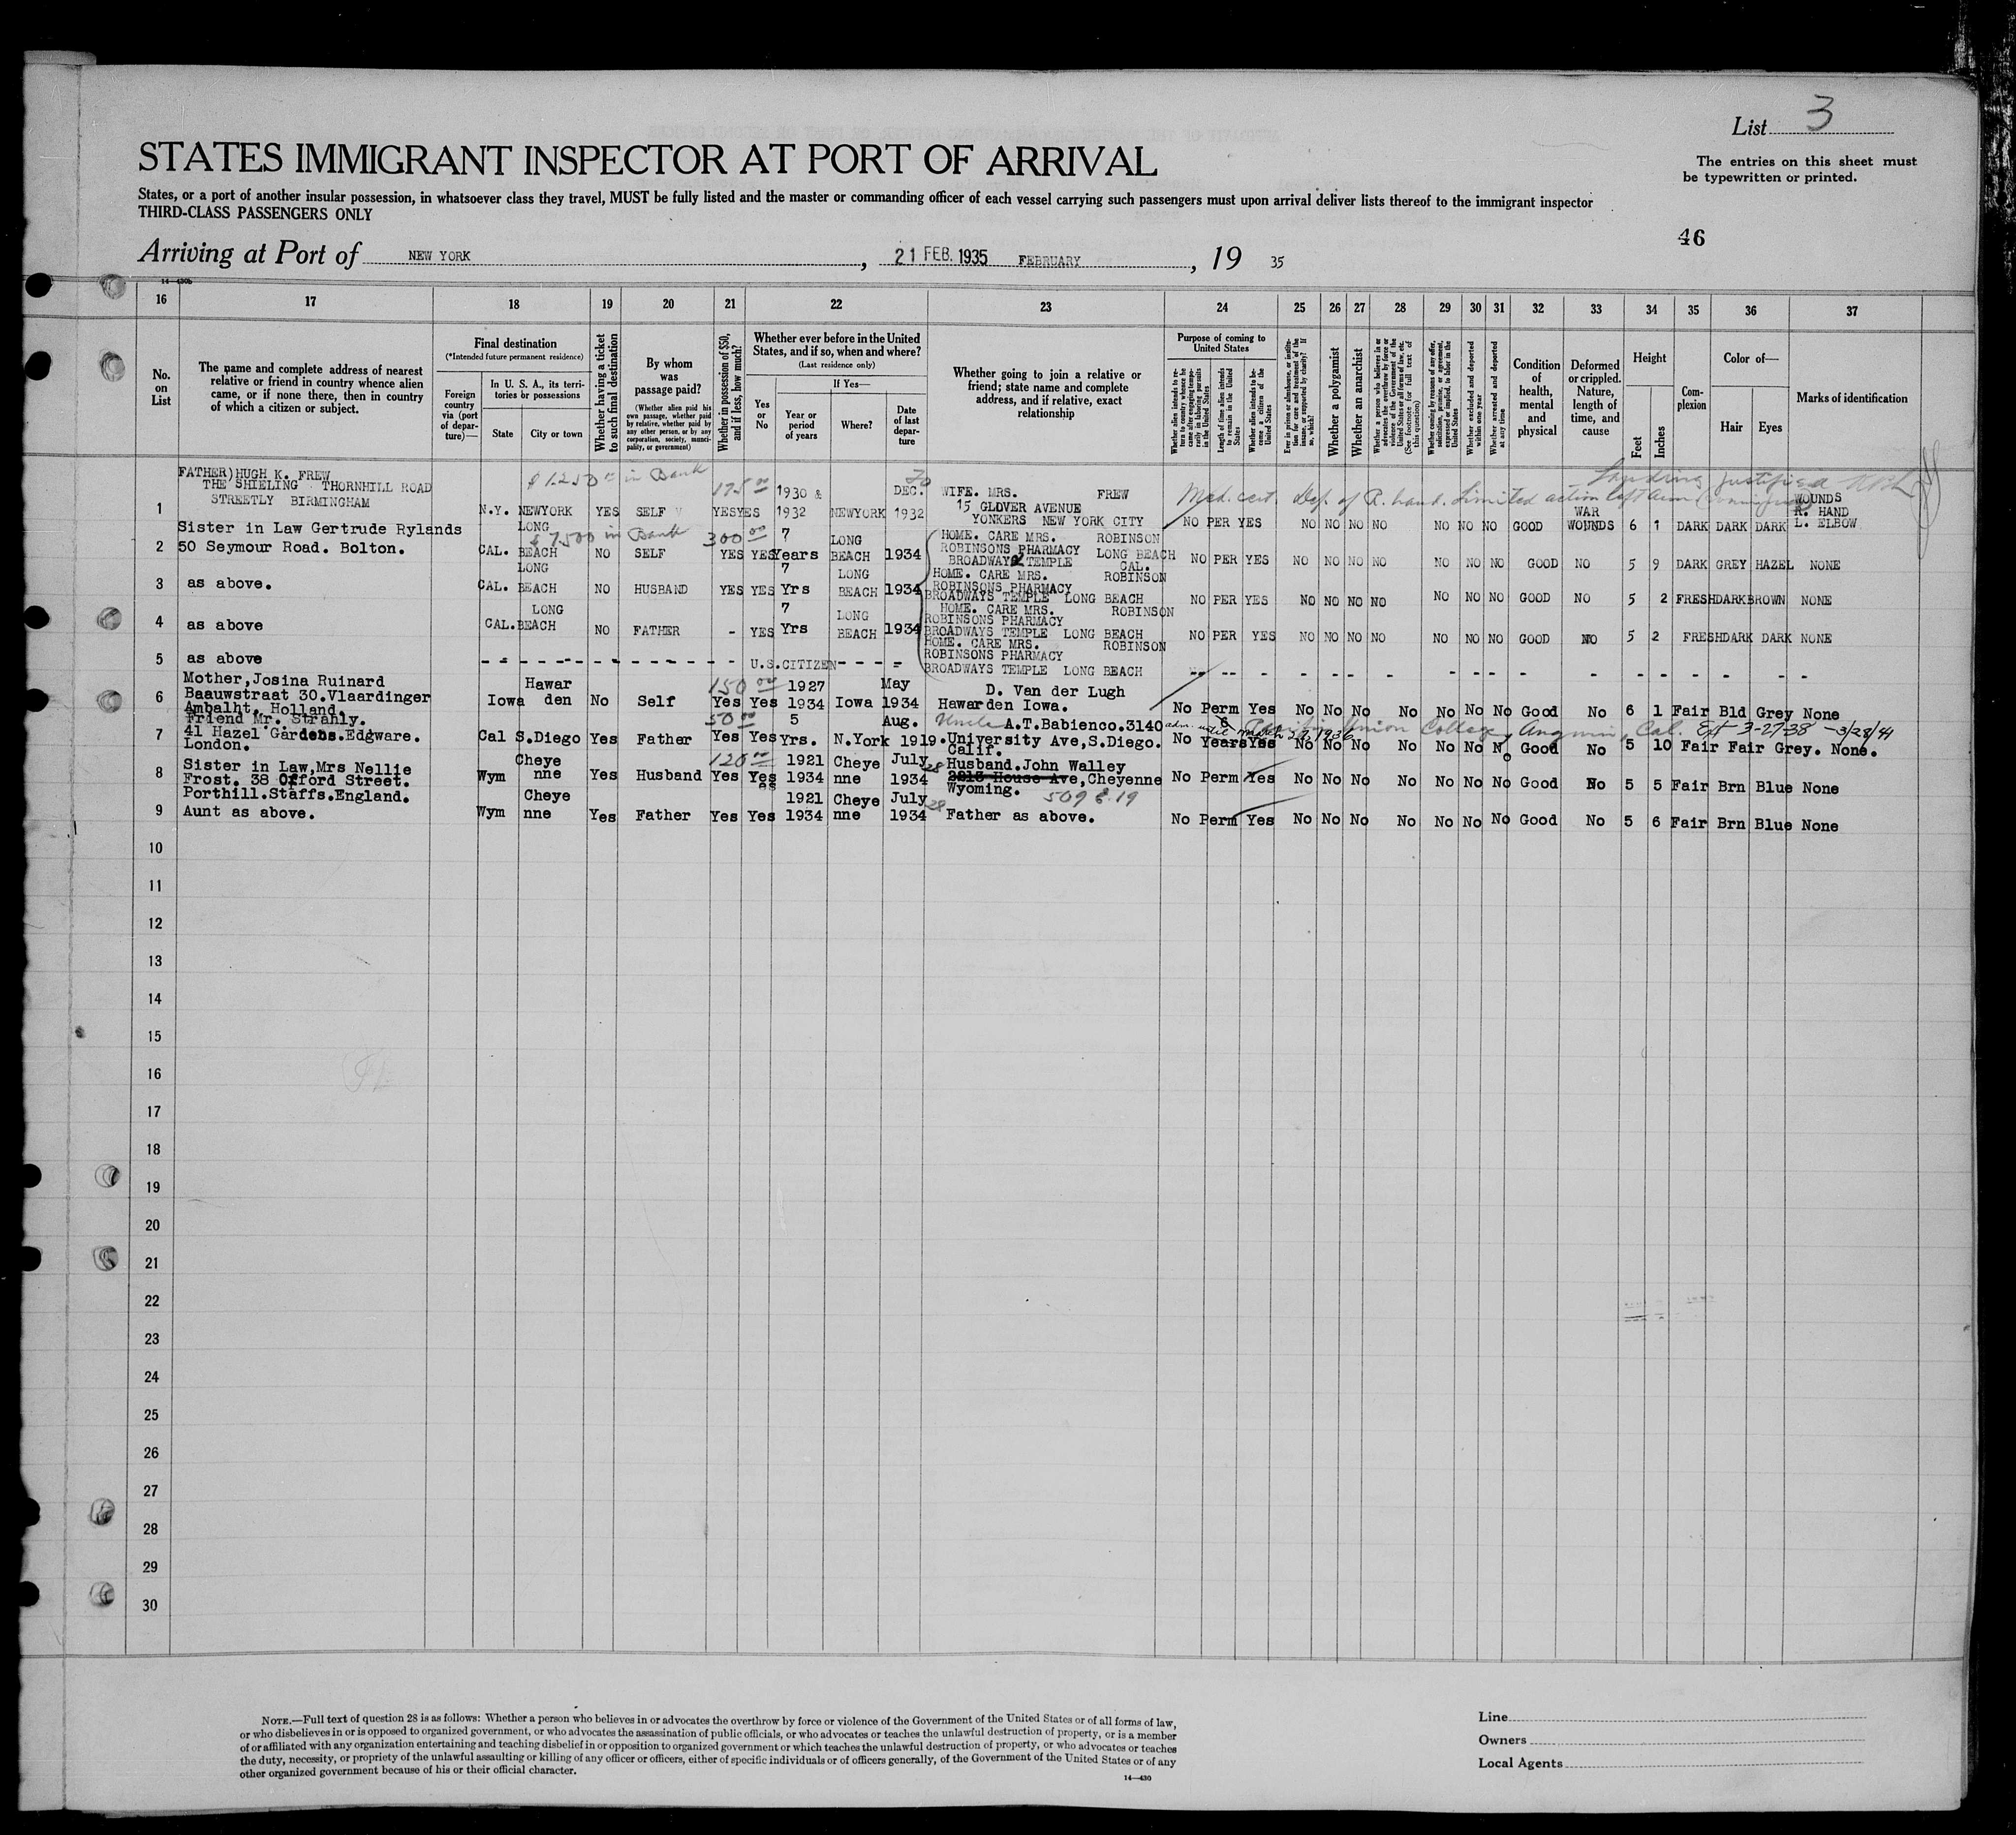 List 3
The entries on this sheet must
be typewritten or printed.
STATES IMMIGRANT INSPECTOR AT PORT OF ARRIVAL
States, or a port of another insular possession, in whatsoever class they travel, MUST be fully listed and the master or commanding officer of each vessel carrying such passengers must upon arrival deliver lists thereof to the immigrant inspector
THIRD-CLASS PASSENGERS ONLY
46
Arriving at Port of NEW YORK, 21 FEB. 1935 FEBRUARY, 19 35
16 17 18 19 20 21 22 23 24 25 26 27 28 29 30 31 32 33 34 35 36 37
No. on List
The name and complete address of nearest relative or friend in country whence alien came, or if none there, then in country of which a citizen or subject.
Final destination
(*Intended future permanent residence)
Foreign country via (port of departure)—
In U. S. A., its territories or possessions
State
City or town
Whether having a ticket to such final destination
By whom was passage paid?
(Whether alien paid his own passage, whether paid by relative, whether paid by any other person, or by any corporation, society, municipality, or government)
Whether in possession of $50, and if less, how much?
Whether ever before in the United States, and if so, when and where?
(Last residence only)
Yes or No
If Yes—
Year or period of years
Where?
Date of last departure
Whether going to join a relative or friend; state name and complete address, and if relative, exact relationship
Purpose of coming to United States
Length of time alien intends to remain in the United States
Whether alien intends to become a citizen of the United States
Whether a polygamist
Whether an anarchist
Whether excluded and deported within one year
Whether arrested and deported at any time
Condition of health, mental and physical
Deformed or crippled. Nature, length of time, and cause
Height
Feet
Inches
Complexion
Color of—
Hair
Eyes
Marks of identification
1 FATHER)HUGH K. FREW
THE SHIELING THORNHILL ROAD
STREETLY BIRMINGHAM
N.Y. NEWYORK YES SELF YES YES 1930 & 1932 NEWYORK DEC. 1932
WIFE. MRS. FREW
15 GLOVER AVENUE
YONKERS NEW YORK CITY
NO PER YES NO NO NO NO NO NO NO GOOD WAR WOUNDS 6 1 DARK DARK DARK WOUNDS R. HAND L. ELBOW
$1250 in Bank 175 00
Med. cert. Def. of R. hand. Limited action left arm
2 Sister in Law Gertrude Rylands
50 Seymour Road. Bolton.
CAL. LONG BEACH NO SELF YES YES 7 Years LONG BEACH 1934
$7500 in Bank 300 00
HOME. CARE MRS. ROBINSON
ROBINSONS PHARMACY LONG BEACH
BROADWAY & TEMPLE CAL.
NO PER YES NO NO NO NO NO NO NO GOOD NO 5 9 DARK GREY HAZEL NONE
3 as above.
CAL. LONG BEACH NO HUSBAND YES YES 7 Yrs LONG BEACH 1934
HOME. CARE MRS. ROBINSON
ROBINSONS PHARMACY
BROADWAYS TEMPLE LONG BEACH
NO PER YES NO NO NO NO NO NO NO GOOD NO 5 2 FRESH DARK BROWN NONE
4 as above
CAL. LONG BEACH NO FATHER - YES 7 Yrs LONG BEACH 1934
HOME. CARE MRS. ROBINSON
ROBINSONS PHARMACY
BROADWAYS TEMPLE LONG BEACH
NO PER YES NO NO NO NO NO NO NO GOOD NO 5 2 FRESH DARK DARK NONE
5 as above
- - - - - - - - - - U.S.CITIZEN - - - - -
HOME. CARE MRS. ROBINSON
ROBINSONS PHARMACY
BROADWAYS TEMPLE LONG BEACH
6 Mother,Josina Ruinard
Baauwstraat 30.Vlaardinger
Ambalht. Holland.
Iowa Hawar den No Self Yes Yes 1927 1934 Iowa May 1934
150 00
D. Van der Lugh
Hawarden Iowa.
No Perm Yes No No No No No No No Good No 6 1 Fair Bld Grey None
7 Friend Mr. Strahly.
41 Hazel Gardens.Edgware.
London.
Cal S.Diego Yes Father Yes Yes 5 Yrs. N.York Aug. 1919.
50 00
Uncle A.T.Babienco.3140
University Ave,S.Diego.
Calif.
No 6 Years Yes No No No No No No No Good No 5 10 Fair Fair Grey. None.
Union College, Angwin, Cal. Ext 3-27-38 - 3/28/41
8 Sister in Law,Mrs Nellie
Frost. 38 Offord Street.
Porthill.Staffs.England.
Wym Cheye nne Yes Husband Yes Yes 1921 1934 Cheye nne July 28 1934
120 00
Husband.John Walley
2213 House Ave,Cheyenne
Wyoming. 509 E. 19
No Perm Yes No No No No No No No Good No 5 5 Fair Brn Blue None
9 Aunt as above.
Wym Cheye nne Yes Father Yes Yes 1921 1934 Cheye nne July 28 1934
Father as above.
No Perm Yes No No No No No No No Good No 5 6 Fair Brn Blue None
10
11
12
13
14
15
16
17
18
19
20
21
22
23
24
25
26
27
28
29
30
NOTE.—Full text of question 28 is as follows: Whether a person who believes in or advocates the overthrow by force or violence of the Government of the United States or of all forms of law,
or who disbelieves in or is opposed to organized government, or who advocates the assassination of public officials, or who advocates or teaches the unlawful destruction of property, or is a member
of or affiliated with any organization entertaining and teaching disbelief in or opposition to organized government or which teaches the unlawful destruction of property, or who advocates or teaches
the duty, necessity, or propriety of the unlawful assaulting or killing of any officer or officers, either of specific individuals or of officers generally, of the Government of the United States or of any
other organized government because of his or their official character.
14—430
Line
Owners
Local Agents